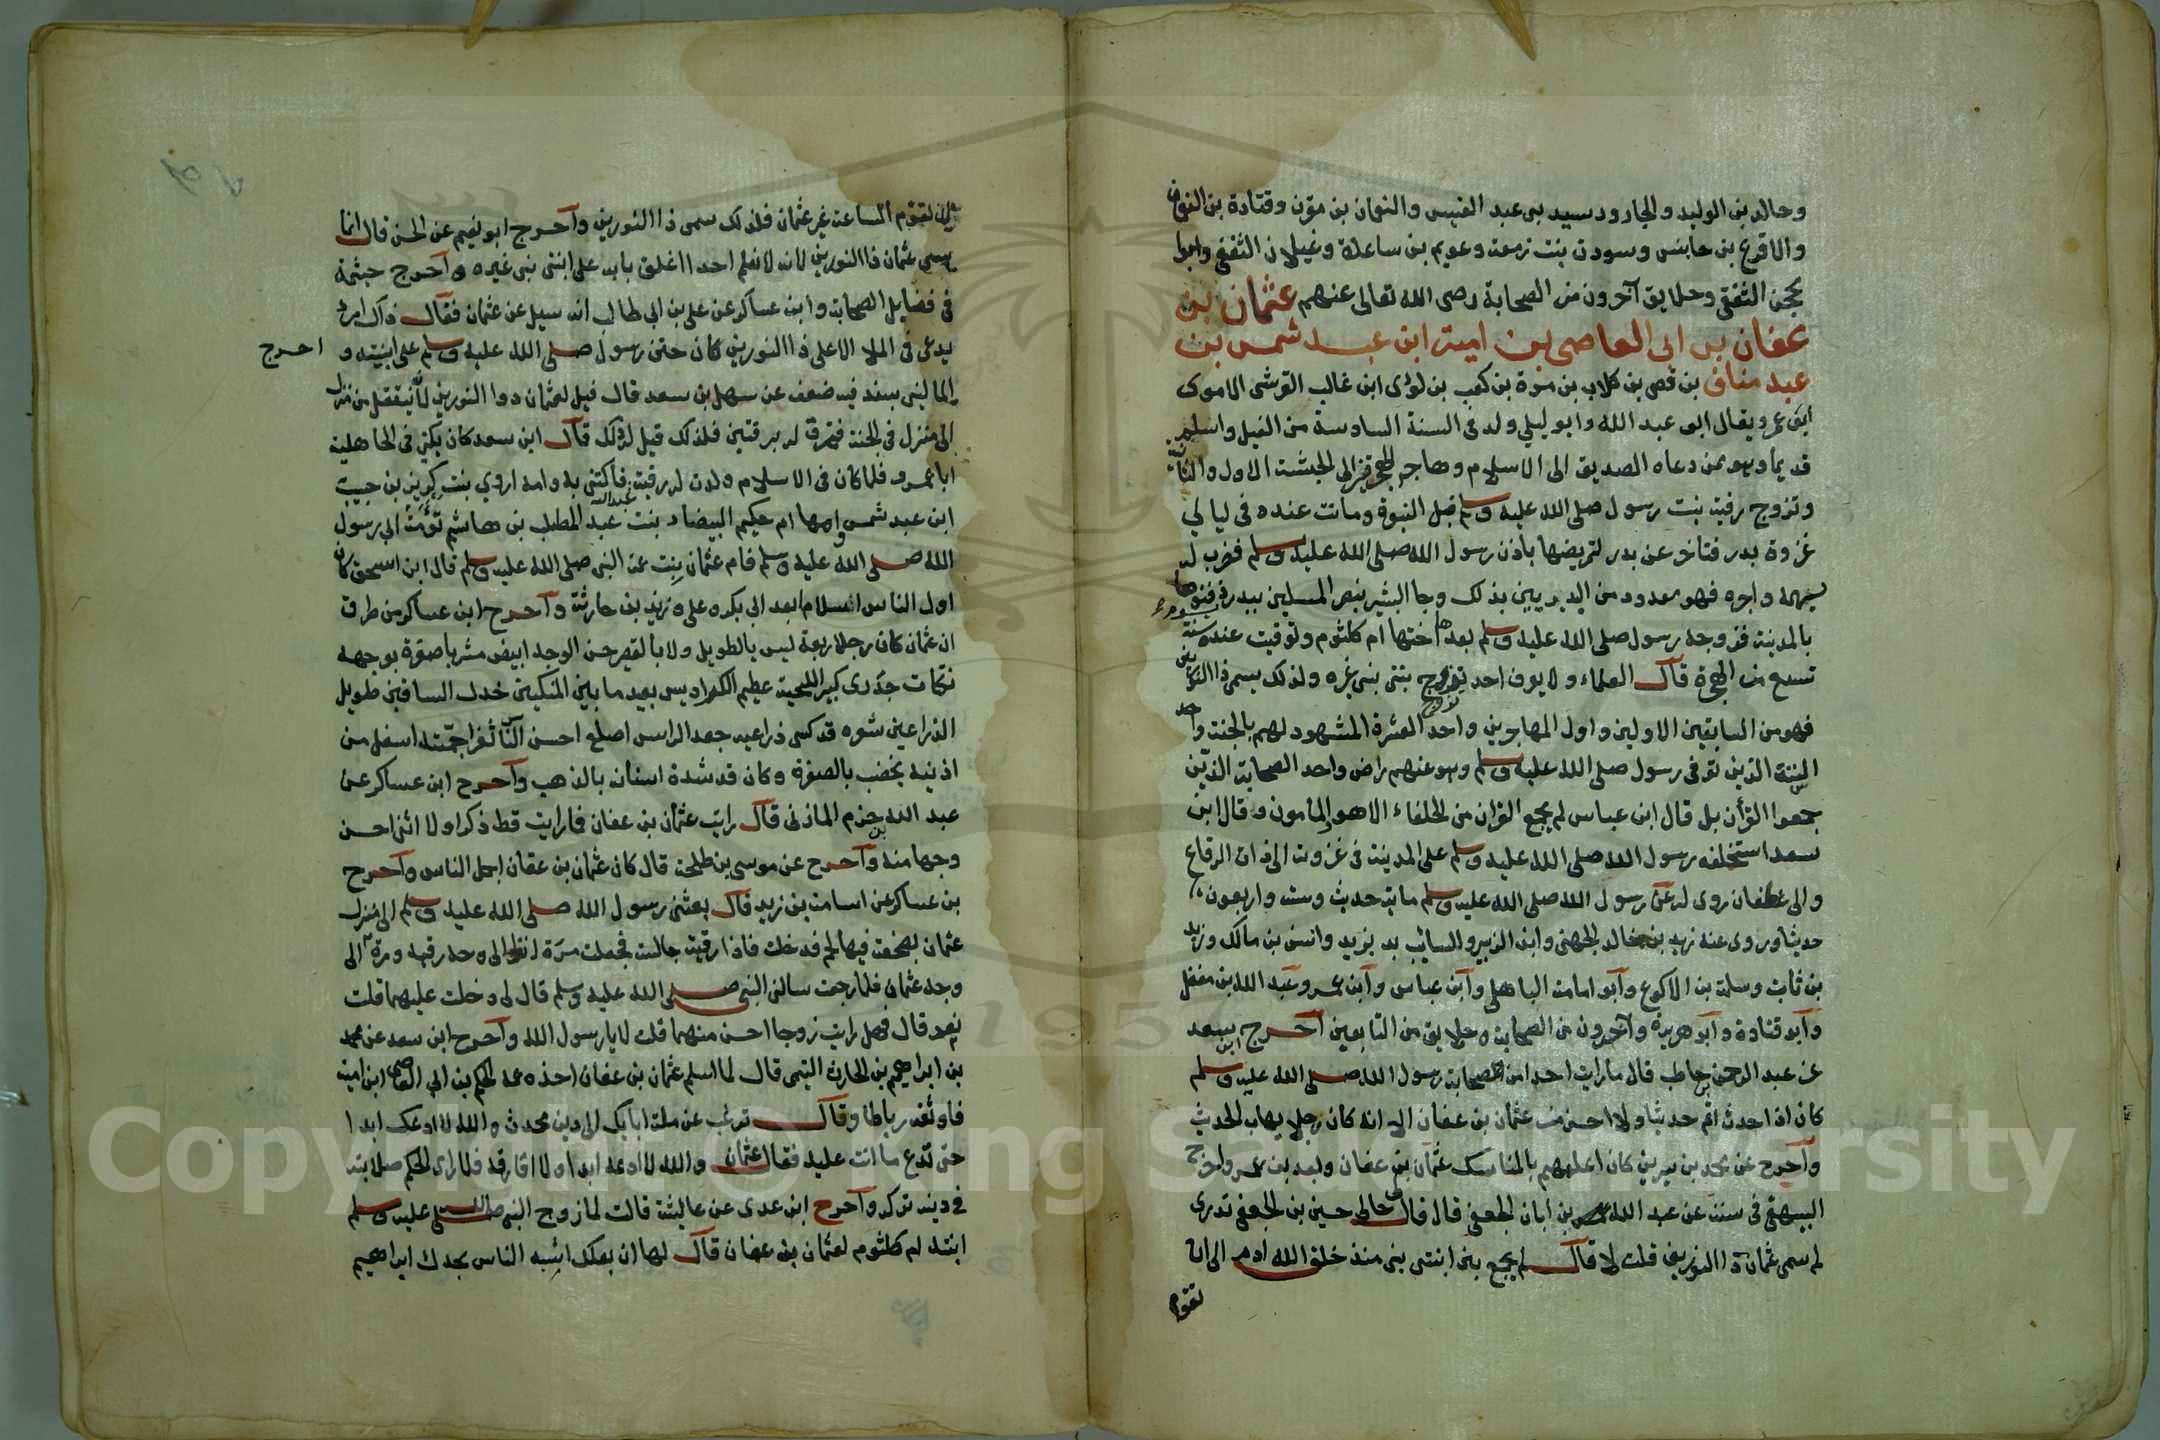 وخالد بن الوليد والجارود سيد بنى عبد القيس والنعمان بن مقرن وقتادة بن النعمان
والاقرع بن حابس وسودة بنت زمعة وعويم بن ساعدة وغيلان الثقفي وابو
محجن الثقفي وخلايق آخرون من الصحابة رضى الله تعالى عنهم عثمان بن
عفان بن ابى العاصى بن امية ابن عبد شمس بن
عبد مناف بن قصى بن كلاب بن مرة بن كعب بن لؤى ابن غالب القرشى الاموى
ابو عمرو يقال ابو عبد الله وابو ليلى ولد فى السنة السادسة من الفيل واسلم
قديما وهو ممن دعاه الصديق الى الاسلام وهاجر الهجرتين الى الحبشة الاول والثانية
وتزوج رقية بنت رسول صلى الله عليه وسلم قبل النبوة وماتت عنده فى ليالي
غزوة بدر فتاخر عن بدر لتمريضها باذن رسول الله صلى الله عليه وسلم فضرب له
بسهمه واجره فهو معدود من البدريين بذلك وجا البشير بنصر المسلمين ببدر يوم دفنوها
بالمدينة فزوجه رسول صلى الله عليه وسلم بعدها اختها ام كلثوم وتوفيت عنده سنة
تسع من الهجرة قال العلماء ولا يعرف احد تزوج بنتى نبى غيره ولذلك يسمى ذا النورين
فهو من السابقين الاولين واول المهاجرين واحد العشرة المشهود لهم بالجنة واحد
الستة الذين توفى رسول صلى الله عليه وسلم وهو عنهم راض واحد الصحابة الذين
جمعوا القرأن بل قال ابن عباس لم يجمع القران من الخلفاء الا هو والمأمون وقال ابن
سعد استخلفه رسول الله صلى الله عليه وسلم على المدينة فى غزوت الى ذات الرقاع
والى غطفان روى له عن رسول الله صلى الله عليه وسلم ماية حديث وست واربعون
حديثا وروى عنه زيد بن خالد الجهنى وابن الزبير والسائب بن يزيد وانس بن مالك وزيد
بن ثابت وسلمة بن الاكوع وابو امامة الباهلى وابن عباس وابن عمر وعبد الله بن مغفل
وابو قتادة وابو هريرة وآخرون من الصحابة وخلايق من التابعين آخرج ابن سعد
عن عبد الرحمن بن حاطب قال ما رايت احدا من الصحابة رسول الله صلى الله عليه وسلم
كان اذا حدث اتم حديثا ولا احسن من عثمان بن عفان الا انه كان رجلا يهاب الحديث
وآخرج عن محمد بن سيرين كان اعلمهم بالمناسك عثمان بن عفان وبعد بن عمر واخرج
البيهقي فى سننه عن عبد الله بن ابان الجعفى قال قال لى خالى حسين بن الجعفى تدرى
لم سمى عثمان ذا النورين قلت لا قال لم يجمع بين ابنتى نبى منذ خلق الله ادم الى ان
تقوم
تقوم الساعة غير عثمان فلذلك سمى ذا النورين وآخرج ابو نعيم عن الحسن قال انما
سمى عثمان ذا النورين لانه لا نعلم احدا اغلق بابه على ابنتى نبى غيره وآخرج خيثمة
فى فضايل الصحابة وابن عساكر عن على بن ابى طالب انه سيل عن عثمان فقال ذاك امرؤ
يدعى فى الملا الاعلى ذا النورين كان ختن رسول صلى الله عليه وسلم على ابنتيه و اخرج
المالينى بسند فيه ضعف عن سهل بن سعد قال قيل لعثمان ذوا النورين لأنه ينتقل من منزل
الى منزل فى الجنة فتبرق له برقتين فلذلك قيل له ذلك قال ابن سعد كان يكنى فى الجاهلية
ابا عمرو فلما كان فى الاسلام ولدت له رقية عبد الله فاكتنى به وامه اروي بنت كريز بن حبيب
ابن عبد شمس وامها ام حكيم البيضاء بنت عبد المطلب بن هاشم توأمت ابى رسول
الله صلى الله عليه وسلم فام عثمان بنت عمة النبى صلى الله عليه وسلم قال ابن اسحق كان
اول الناس اسلاما بعد ابى بكر وعلى وزيد بن حارثة وآخرج ابن عساكر من طرق
ان عثمان كان رجلا ربعة ليس بالطويل ولا بالقصير حسن الوجه ابيض مشربا صفرة بوجهه
نكات جدرى كبير اللحية عظيم الكراديس بعيد ما بين المنكبين خدل الساقين طويل
الذراعين شعره قد كسى ذراعيه جعد الراس اصلع احسن الناس ثغرا جمته اسفل من
اذنيه يخضب بالصفرة وكان قد شدة اسنان بالذهب وآخرج ابن عساكر عن
عبد الله بن حزم المازنى قال رايت عثمان بن عفان فما رايت قط ذكرا ولا انثى احسن
وجها منه وآخرج عن موسى بن طلحة قال كان عثمان بن عفان اجمل الناس وآخرج
بن عساكر عن اسامة بن زيد قال بعثنى رسول الله صلى الله عليه وسلم الى منزل
عثمان بصحفة فيها لحم فدخلت فاذا رقية جالسة فجعلت مرة انظر الى وجه رقية ومرة الى
وجه عثمان فلما رجعت سالنى النبى صلى الله عليه وسلم قال لى دخلت عليهما قلت
نعم قال فهل رايت زوجا احسن منهما قلت لا يا رسول الله وآخرج ابن سعد عن محمد
بن ابراهيم بن الحارث التيمى قال لما اسلم عثمان بن عفان اخذه عمه الحكم بن ابى العاصى ابن امية
فاوثقه رباطا وقال ترغب عن ملة ابايك الى دين محدث والله لا ادعك ابدا
حتى تدع ما انت عليه فقال عثمان والله لا ادعه ابدا ولا افارقه فلما راى الحكم صلابته
فى دينه تركه وآخرج ابن عدى عن عايشة قالت لما زوج النبى صلى الله عليه وسلم
ابنته ام كلثوم لعثمان بن عفان قال لها ان بعلك اشبه الناس بجدك ابراهيم
Copyright © King Saud University
1957